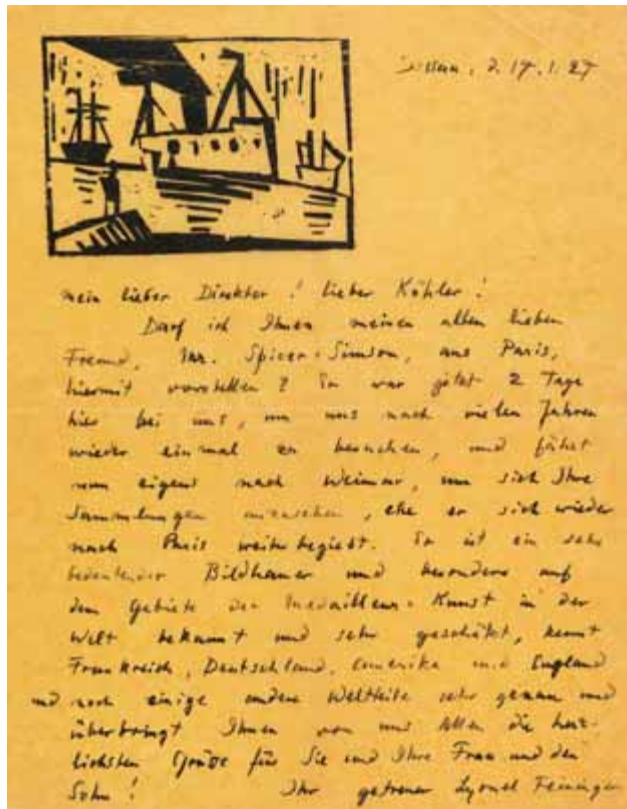 Dessau, d. 17.1.27
mein lieber Direktor! lieber Köhler!
Darf ich Ihnen meinen alten lieben
Freund, Mr. Spicer-Simson, aus Paris,
hiermit vorstellen? Er war jetzt 2 Tage
hier bei uns, um uns nach vielen Jahren
wieder einmal zu besuchen, und fährt
nun eigens nach Weimar, um sich Ihre
Sammlungen anzusehen, ehe er sich wieder
nach Paris weiter begiebt. Er ist ein sehr
bedeutender Bildhauer und besonders auf
dem Gebiete der Medailleur-Kunst in der
Welt bekannt und sehr geschätzt, kennt
Frankreich, Deutschland, Amerika und England
und noch einige andere Weltteile sehr genau und
überbringt Ihnen von uns Allen die herz-
lichsten Grüße für Sie und Ihre Frau und den
Sohn! Ihr getreuer Lyonel Feininger